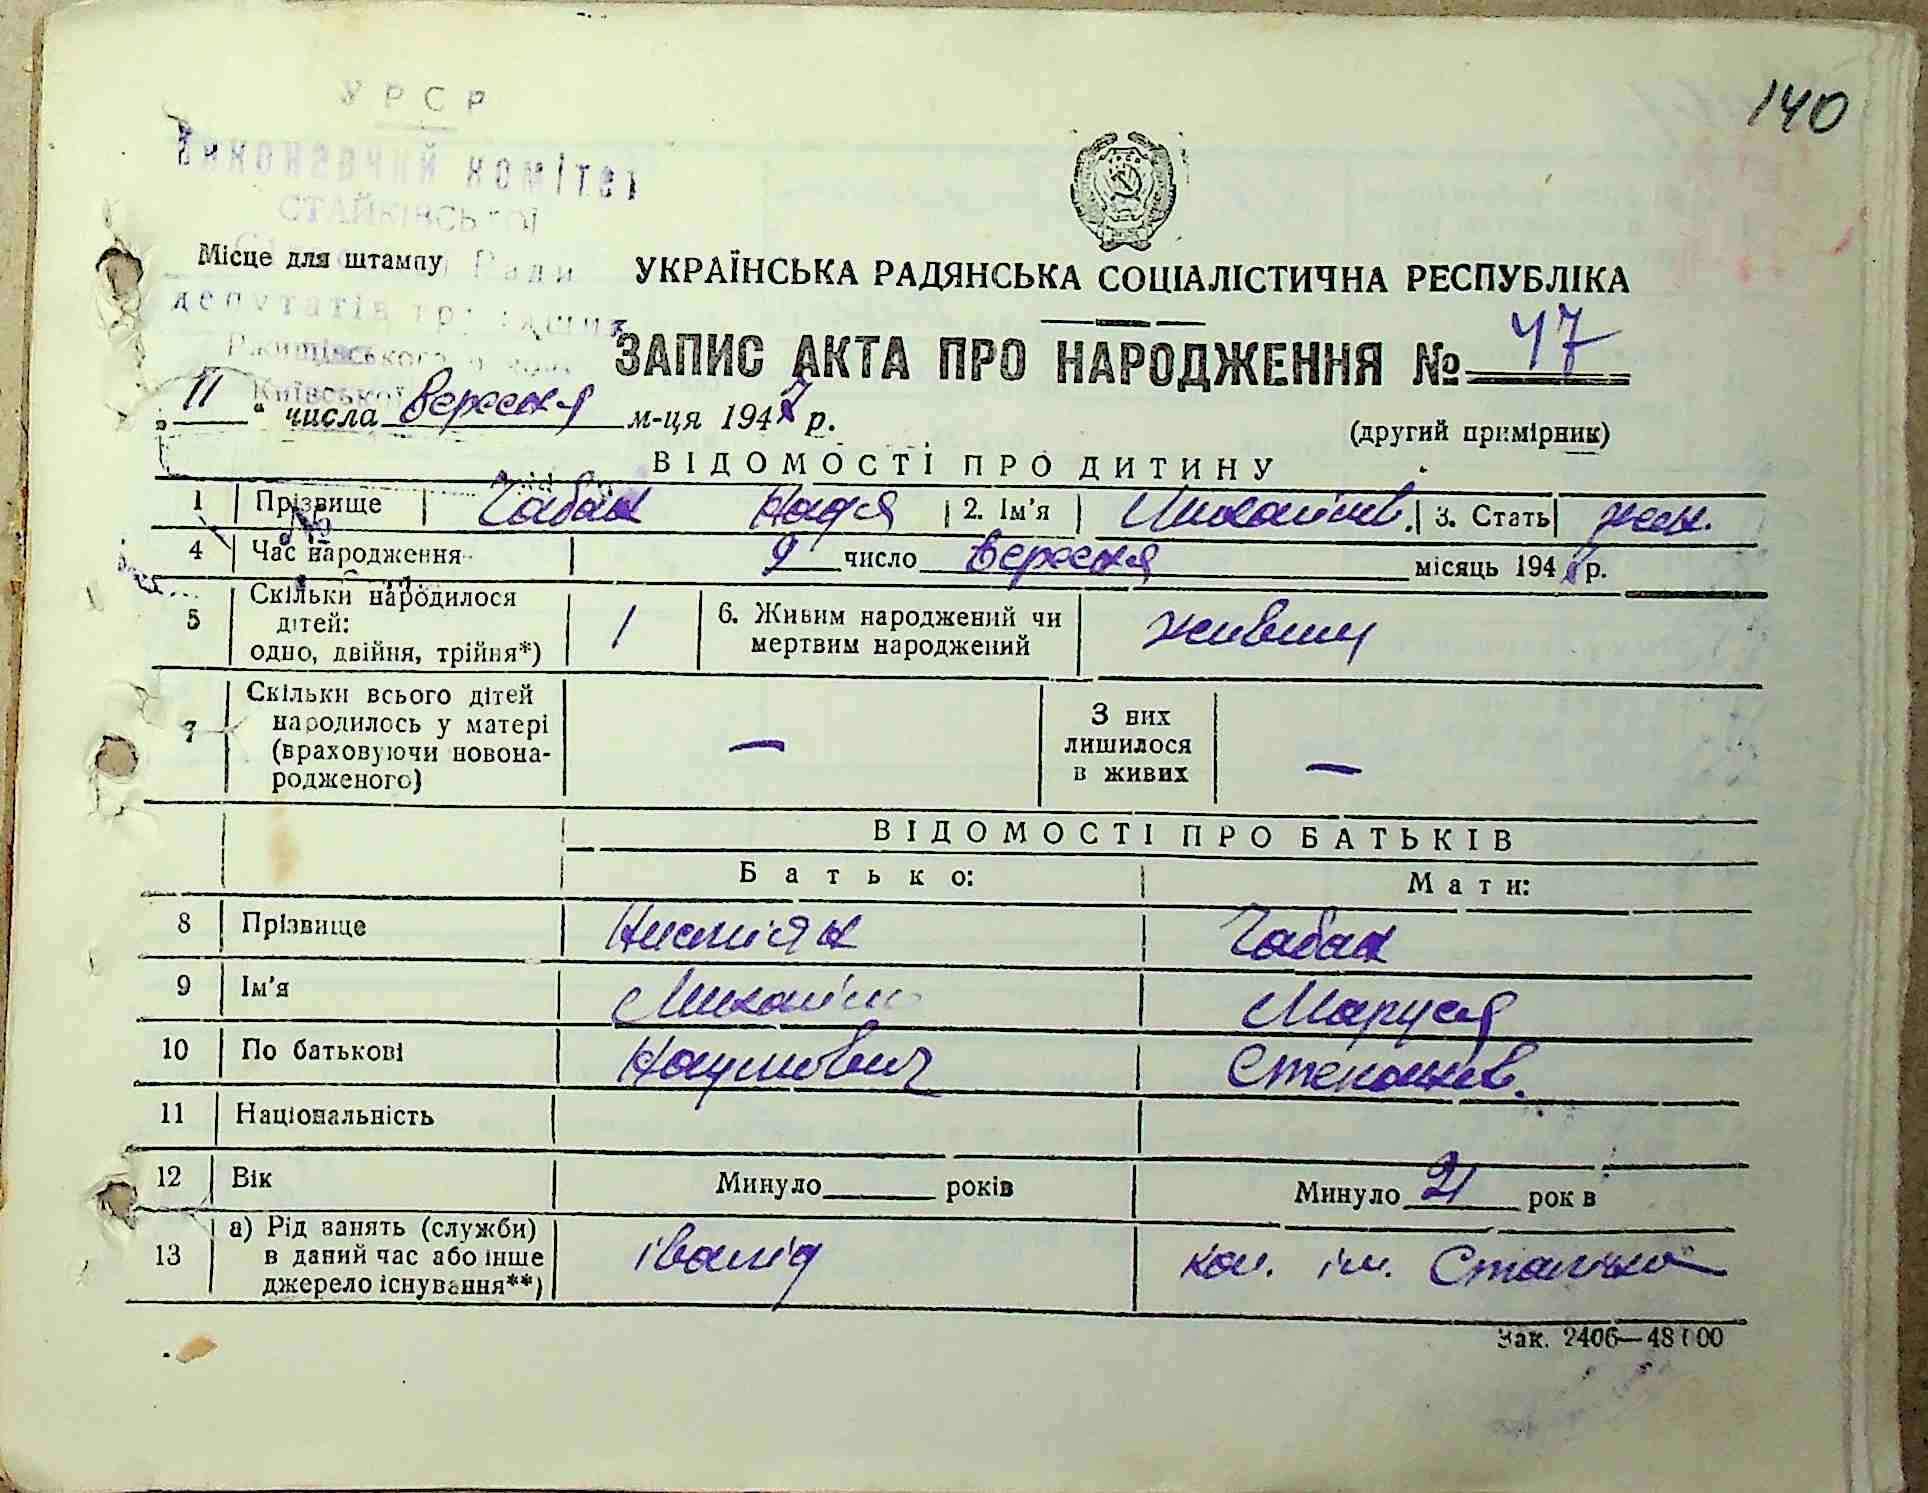 140
УРСР
Виконавчий комітет
СТАЙКІВСЬКОЇ
Сільської Ради
депутатів трудящих
Ржищівського
Київської
Місце для штампу
УКРАЇНСЬКА РАДЯНСЬКА СОЦІАЛІСТИЧНА РЕСПУБЛІКА
ЗАПИС АКТА ПРО НАРОДЖЕННЯ № 47
„ 11 “ числа вересня м-ця 1947 р.
(другий примірник)
ВІДОМОСТІ ПРО ДИТИНУ
1 Прізвище Чабан Надя 2. Ім'я Михайлів. 3. Стать жен.
4 Час народження 9 число вересня місяць 194 р.
5 Скільки народилося дітей: одно, двійня, трійня*) 1 6. Живим народжений чи мертвим народжений живим
7 Скільки всього дітей народилось у матері (враховуючи новонародженого) — З них лишилося в живих —
ВІДОМОСТІ ПРО БАТЬКІВ
Батько: Мати:
8 Прізвище Чабан
9 Ім'я Михайло Маруся
10 По батькові Наумович Степанів.
11 Національність
12 Вік Минуло років Минуло 21 рок в
13 а) Рід занять (служби) в даний час або інше джерело існування**) івалід кол. ім. Сталіна
Зак. 2406—48000